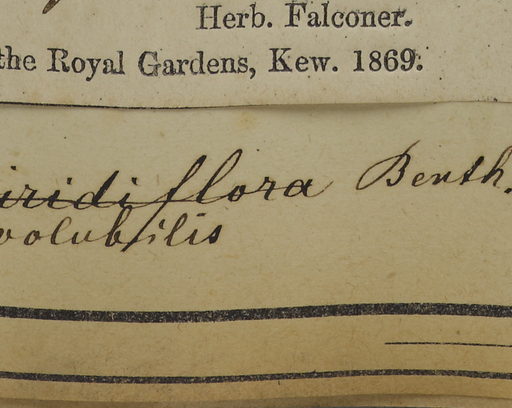 Herb. Falconer.
the Royal Gardens, Kew. 1869.
iridiflora Benth.
volubilis